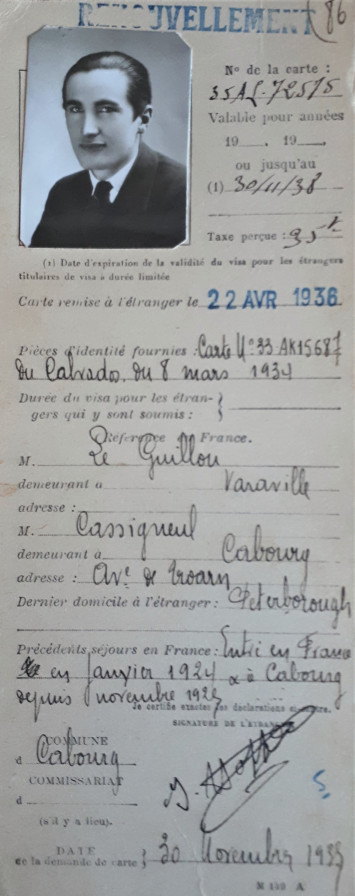 RENOUVELLEMENT
86
N° de la carte :
35AL-72575
Valable pour années
19 . 19 .
ou jusqu'au
(1) 30/11/38
Taxe perçue : 95
(1) Date d'expiration de la validité du visa pour les étrangers
titulaires de visa à durée limitée
Carte remise à l'étranger le 22 AVR 1936
Pièces d'identité fournies : Carte N° 33 AK15687
du Calvados du 8 mars 1934
Durée du visa pour les étran-
gers qui y sont soumis :
Référence en France.
M. Le Guillou
demeurant à Varaville
adresse :
M. Cassigneul
demeurant à Cabourg
adresse : Ave de Troarn
Dernier domicile à l'étranger : Peterborough
Précédents séjours en France : Entré en France
en janvier 1924 à Cabourg
depuis novembre 1925
Je certifie exactes les déclarations ci-contre.
SIGNATURE DE L'ÉTRANGER
COMMUNE
d Cabourg
COMMISSARIAT
d
(s'il y a lieu).
DATE
de la demande de carte 30 Novembre 1935
M 139 A